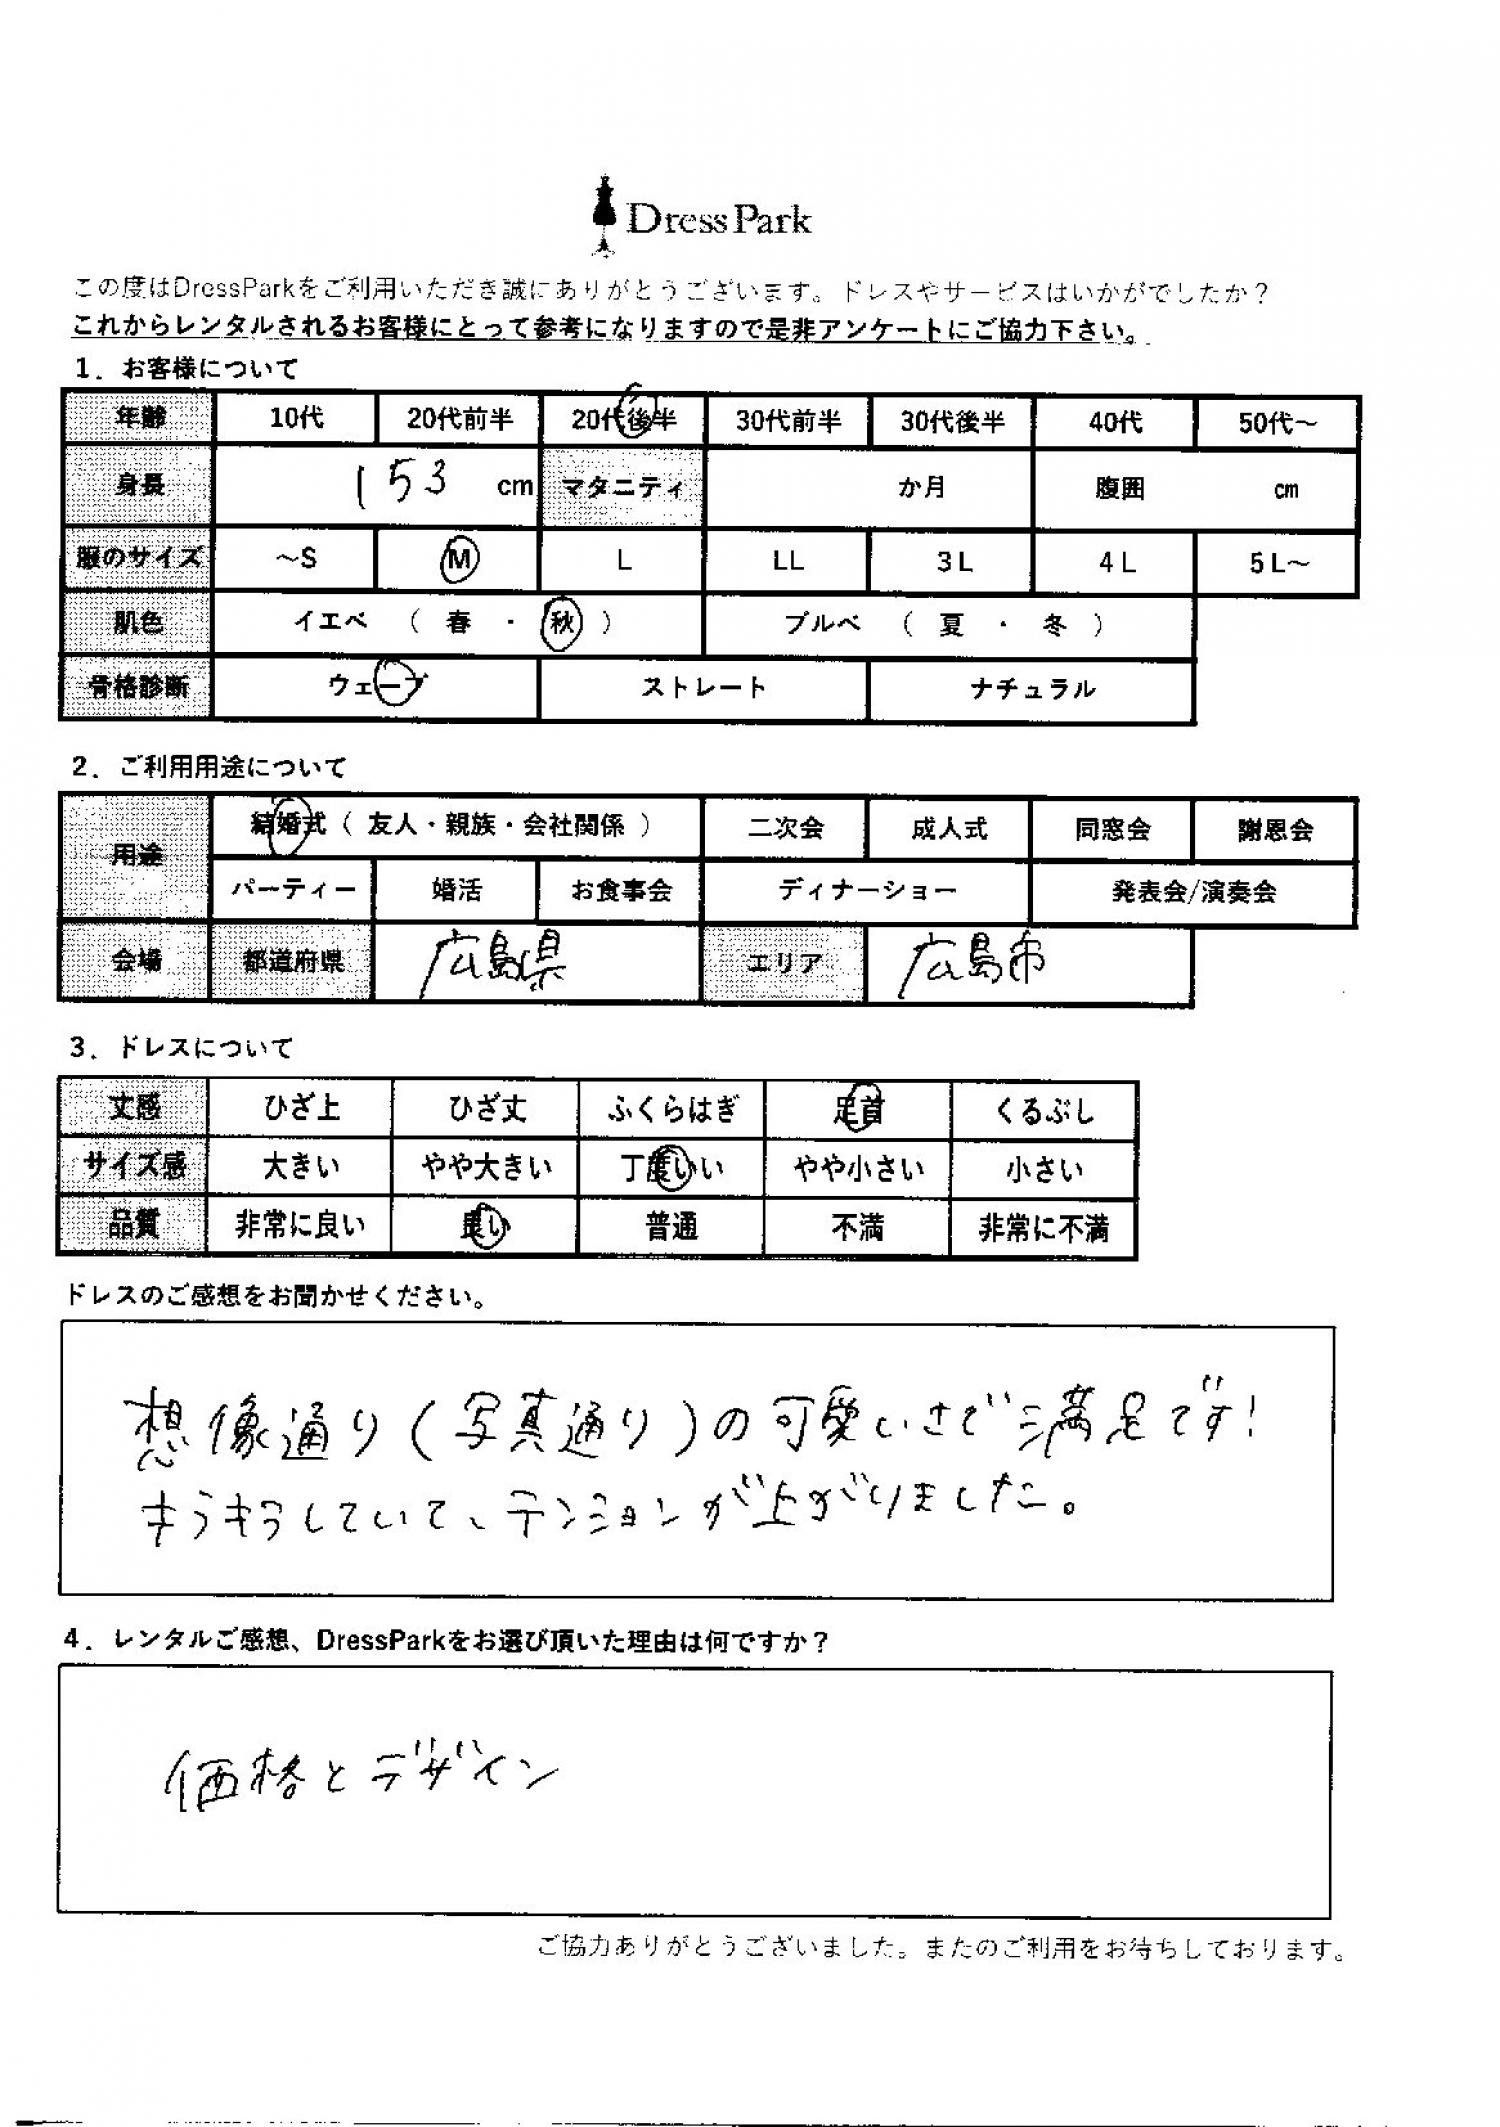 DressPark
この度はDressParkをご利用いただき誠にありがとうございます。ドレスやサービスはいかがでしたか？
これからレンタルされるお客様にとって参考になりますので是非アンケートにご協力下さい。
1．お客様について
年齢 10代 20代前半 20代後半 30代前半 30代後半 40代 50代～
身長 153 cm マタニティ か月 腹囲 cm
服のサイズ ～S M L LL 3L 4L 5L～
肌色 イエベ （ 春 ・ 秋 ） ブルベ （ 夏 ・ 冬 ）
骨格診断 ウェーブ ストレート ナチュラル
2．ご利用用途について
用途 結婚式（ 友人・親族・会社関係 ） 二次会 成人式 同窓会 謝恩会
パーティー 婚活 お食事会 ディナーショー 発表会/演奏会
会場 都道府県 広島県 エリア 広島市
3．ドレスについて
丈感 ひざ上 ひざ丈 ふくらはぎ 足首 くるぶし
サイズ感 大きい やや大きい 丁度いい やや小さい 小さい
品質 非常に良い 良い 普通 不満 非常に不満
ドレスのご感想をお聞かせください。
想像通り(写真通り)の可愛いさで満足です!
キラキラしていて、テンションが上がりました。
4．レンタルご感想、DressParkをお選び頂いた理由は何ですか？
価格とデザイン
ご協力ありがとうございました。またのご利用をお待ちしております。